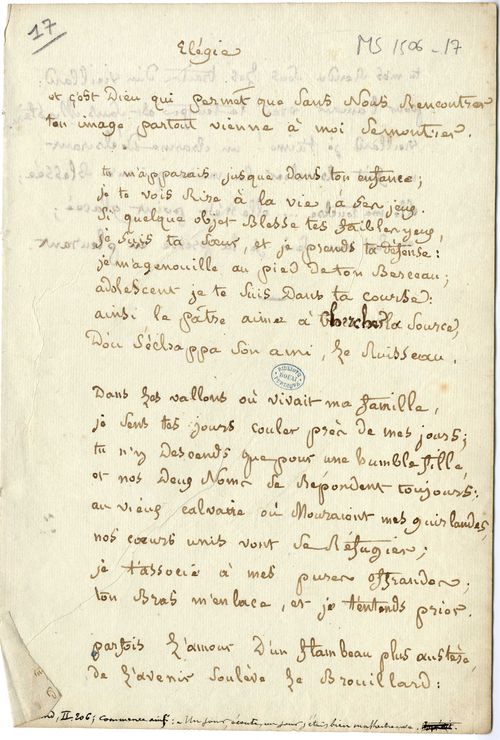 17
MS 1506-17
Elégie
et c'est Dieu qui permet que sans Nous Rencontrer
ton image partout vienne à moi se montrer.
tu m'apparais jusque dans ton enfance;
je te vois Rire à la vie à ses jeux.
Si quelque objet Blesse tes faibles yeux,
je suis ta Sœur, et je prends ta défense:
je m'agenouille au pied de ton Berceau;
adolescent je te suis Dans ta course:
ainsi le pâtre aime à Chercher la Source,
D'où s'échappa son ami, le Ruisseau.
Dans les vallons où vivait ma famille,
je sens tes jours couler près de mes jours;
tu n'y Descends que pour une humble fille,
et nos Deux Noms se Répondent toujours:
au vieux calvaire où Mouraient mes guirlandes,
nos cœurs unis vont se Réfugier;
je t'associe à mes pures offrandes;
ton Bras m'enlace, et je t'entends prier.
parfois l'amour D'un flambeau plus austère,
de l'avenir soulève le Brouillard:
II, 206; Commence ainsi: « Un jour, écoute, un jour j'étais bien malheureuse.